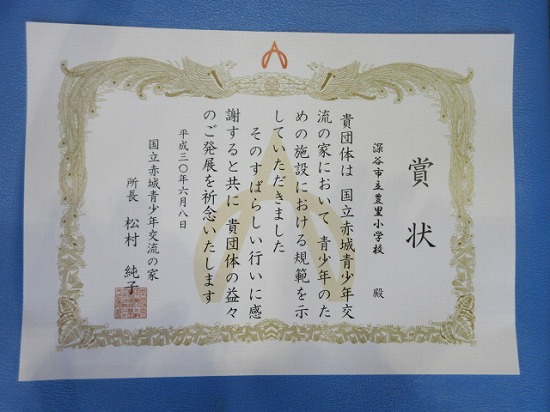 賞状
深谷市立豊里小学校 殿
貴団体は 国立赤城青少年交
流の家において 青少年のた
めの施設における規範を示
していただきました
そのすばらしい行いに感
謝すると共に 貴団体の益々
のご発展を祈念いたします
平成三〇年六月八日
国立赤城青少年交流の家
所長 松村 純子